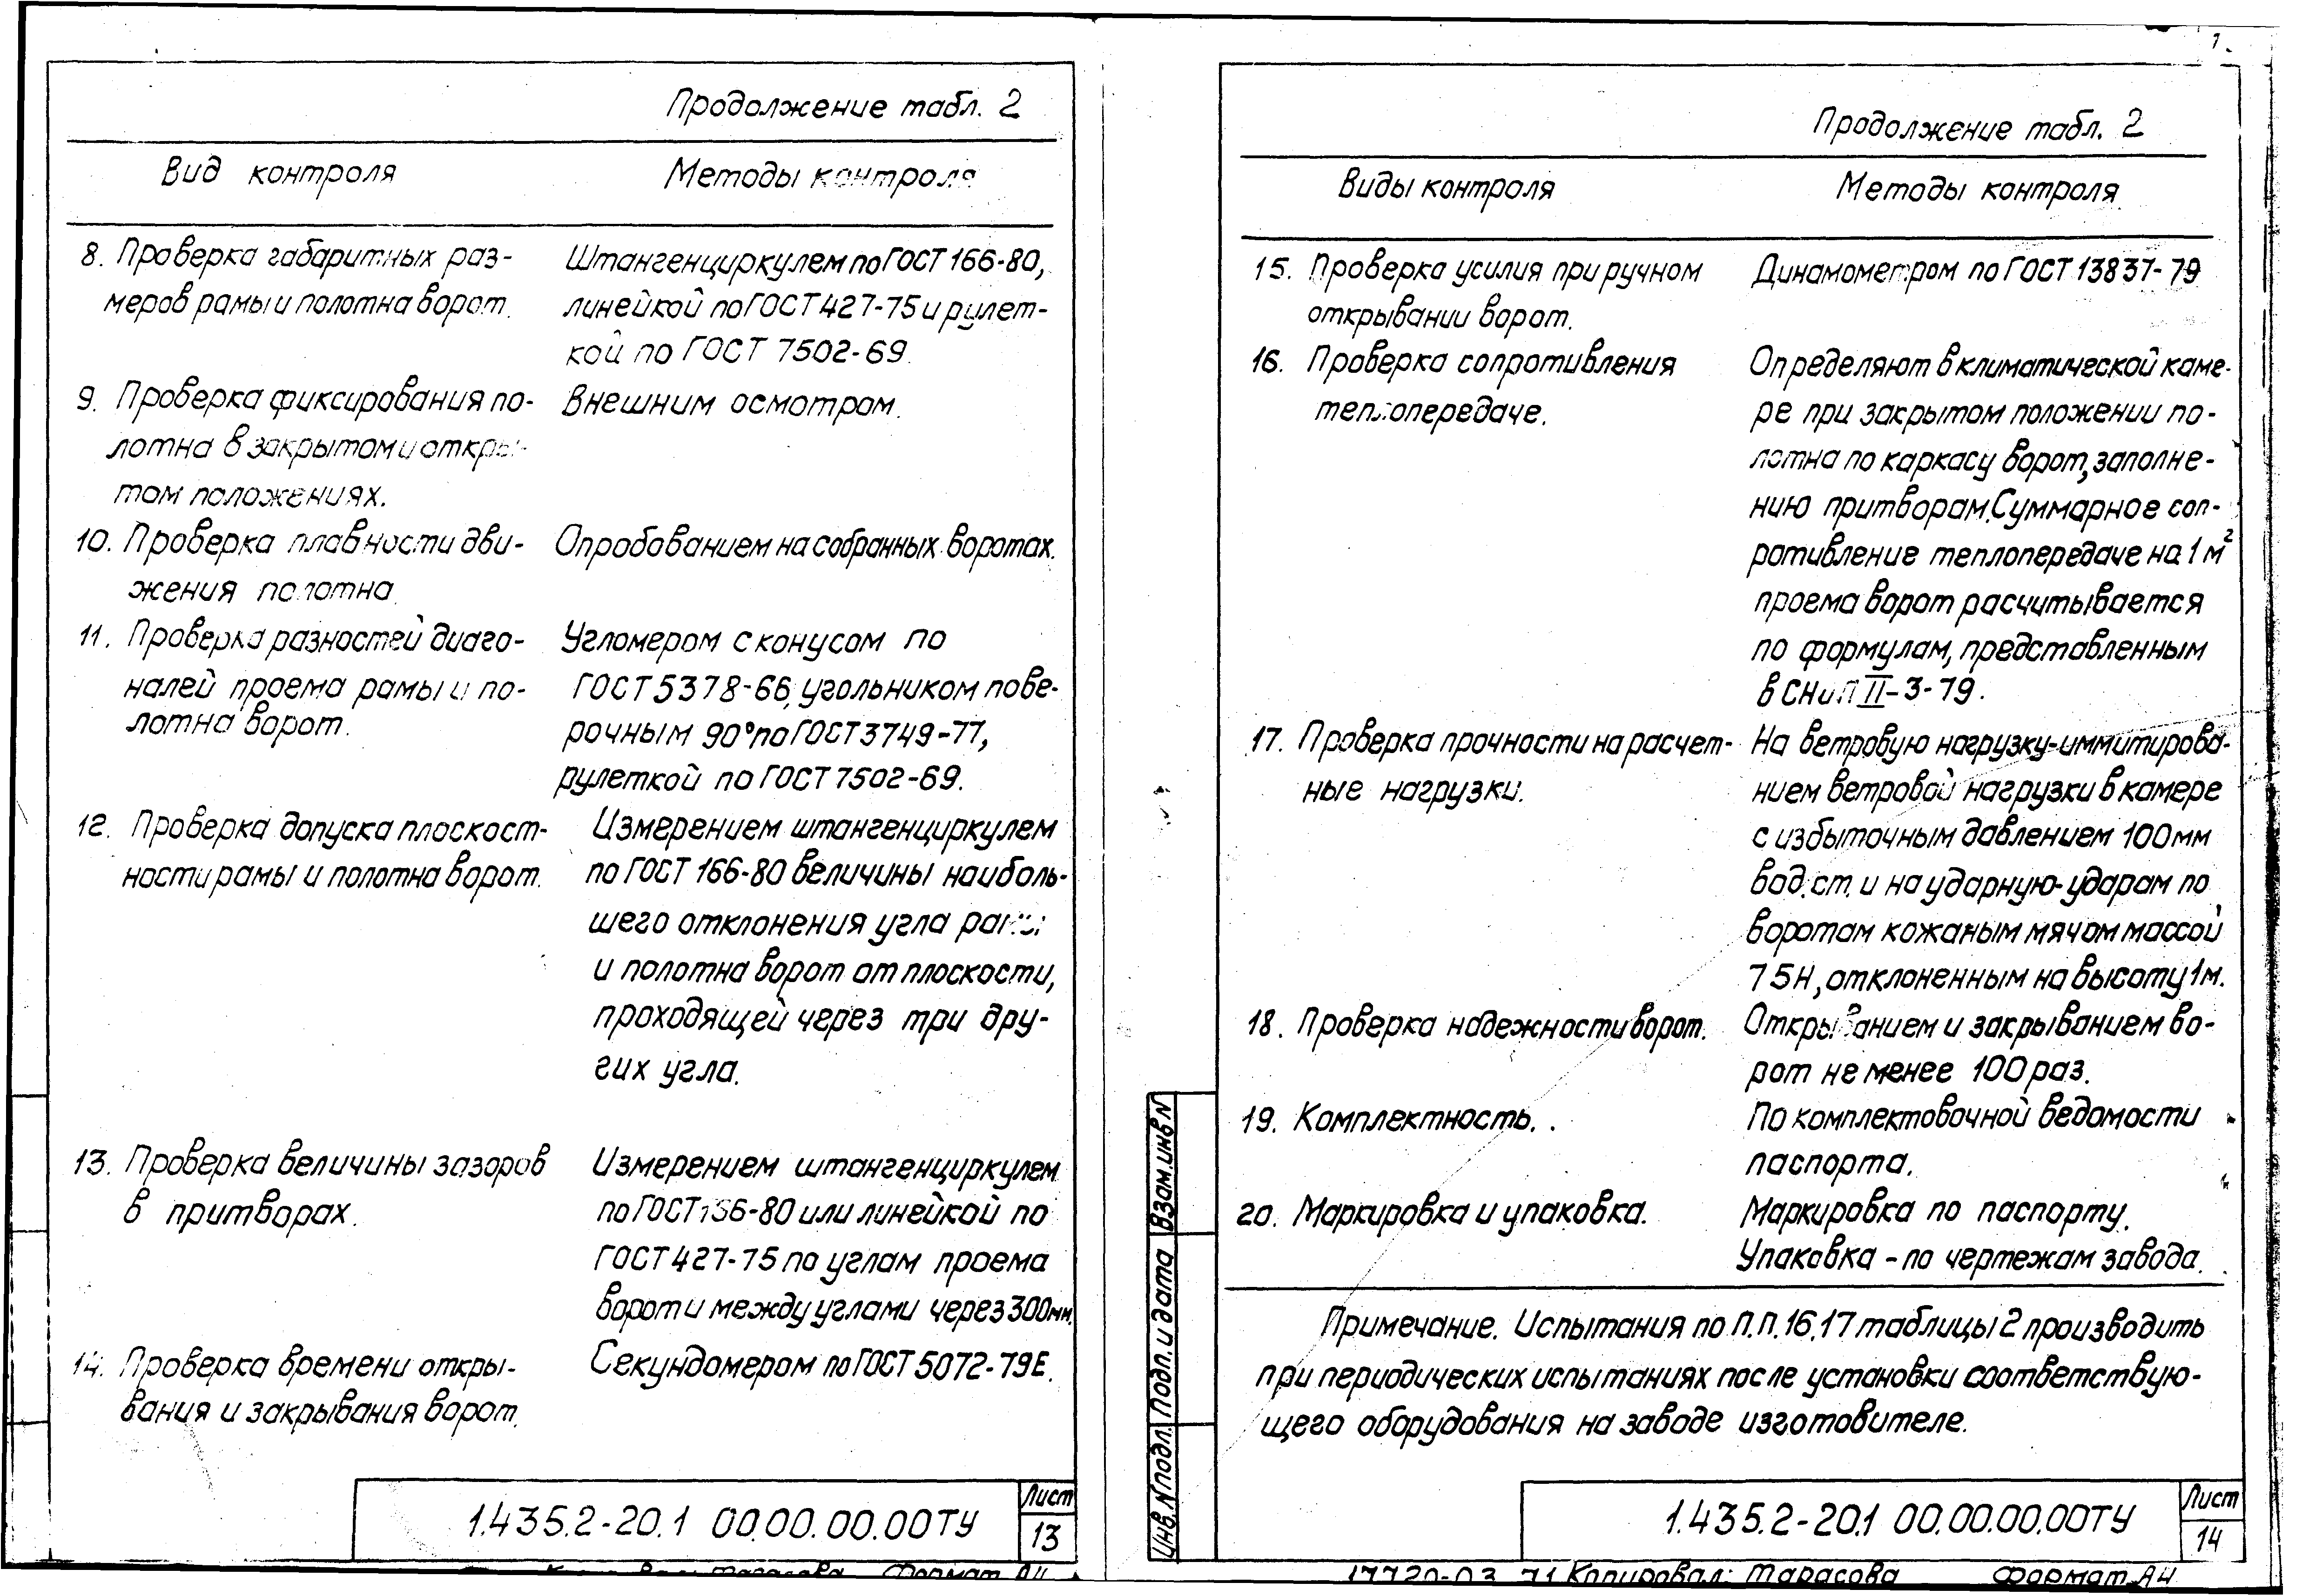 Продолжение табл. 2
Вид контроля Методы контроля
8. Проверка габаритных раз- Штангенциркулем по ГОСТ 166-80,
меров рамы и полотна ворот. линейкой по ГОСТ 427-75 и рулет-
кой по ГОСТ 7502-69.
9. Проверка фиксирования по- Внешним осмотром.
лотна в закрытом и откры-
том положениях.
10. Проверка плавности дви- Опробованием на собранных воротах.
жения полотна.
11. Проверка разностей диаго- Угломером с конусом по
налей проема рамы и по- ГОСТ 5378-66, угольником пове-
лотна ворот. рочным 90° по ГОСТ 3749-77,
рулеткой по ГОСТ 7502-69.
12. Проверка допуска плоскост- Измерением штангенциркулем
ности рамы и полотна ворот. по ГОСТ 166-80 величины наиболь-
шего отклонения угла рамы
и полотна ворот от плоскости,
проходящей через три дру-
гих угла.
13. Проверка величины зазоров Измерением штангенциркулем
в притворах. по ГОСТ 166-80 или линейкой по
ГОСТ 427-75 по углам проема
ворот и между углами через 300мм.
14. Проверка времени откры- Секундомером по ГОСТ 5072-79Е.
вания и закрывания ворот.
1.435.2-20.1 00.00.00.00ТУ
Лист
13
Формат А4
1
Продолжение табл. 2
Виды контроля Методы контроля
15. Проверка усилия при ручном Динамометром по ГОСТ 13837-79
открывании ворот.
16. Проверка сопротивления Определяют в климатической каме-
теплопередаче. ре при закрытом положении по-
лотна по каркасу ворот, заполне-
нию притворам. Суммарное соп-
ротивление теплопередаче на 1 м²
проема ворот расчитывается
по формулам, представленным
в СНиП II-3-79.
17. Проверка прочности на расчет- На ветровую нагрузку-иммитирова-
ные нагрузки. нием ветровой нагрузки в камере
с избыточным давлением 100мм
вод. ст. и на ударную-ударам по
воротам кожаным мячом массой
75Н, отклоненным на высоту 1м.
18. Проверка надежности ворот. Открыванием и закрыванием во-
рот не менее 100 раз.
19. Комплектность. По комплектовочной ведомости
паспорта.
20. Маркировка и упаковка. Маркировка по паспорту.
Упаковка - по чертежам завода.
Примечание. Испытания по П.П. 16,17 таблицы 2 производить
при периодических испытаниях после установки соответствую-
щего оборудования на заводе изготовителе.
Инв. N подл. Подп. и дата Взам. инв N
1.435.2-20.1 00.00.00.00ТУ
Лист
14
17720-03 71 Копировал: Тарасова Формат А4